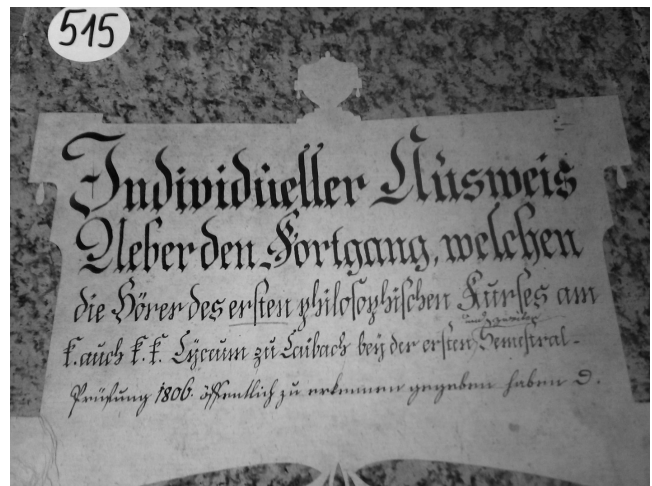 515
Individüeller Aüsweis
Ueber den Fortgang, welchen
die Hörer des ersten philosophischen Kurses am
k. auch k. k. Lÿceum zu Laibach beÿ der ersten Semestral-
Prüfung 1806. öffentlich zu erkennen gegeben haben